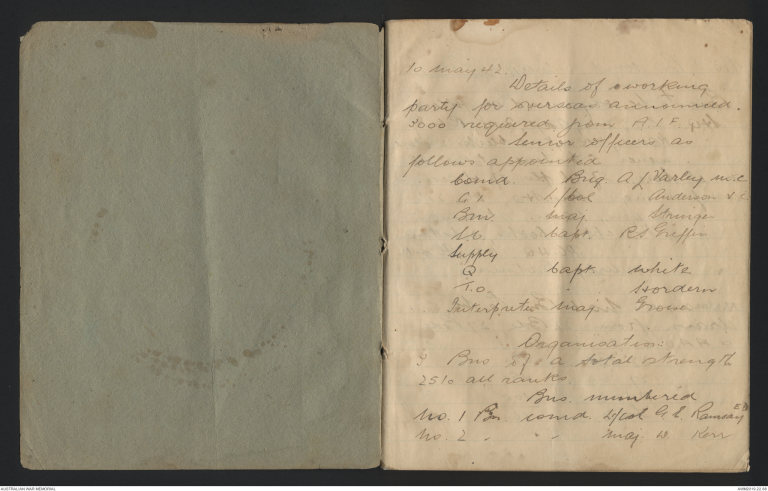 10 May 42.
Details of working
party for overseas announced.
3000 required from A.I.F.
Senior officers as
follows appointed
Comd. Brig. A J Varley M.C.
G.1. L/Col Anderson V.C.
Maj. Stringer
Capt. R S Griffin
Supply
Q Capt. White
T.O. " Hordern
Interpreter Maj
Organisation:
3 Bns of a total strength
all ranks.
Bns. numbered
No. 1 Bn. comd. L/Col G.E. Ramsay ED
No. 2 " " Maj. D. Kerr
AUSTRALIAN WAR MEMORIAL